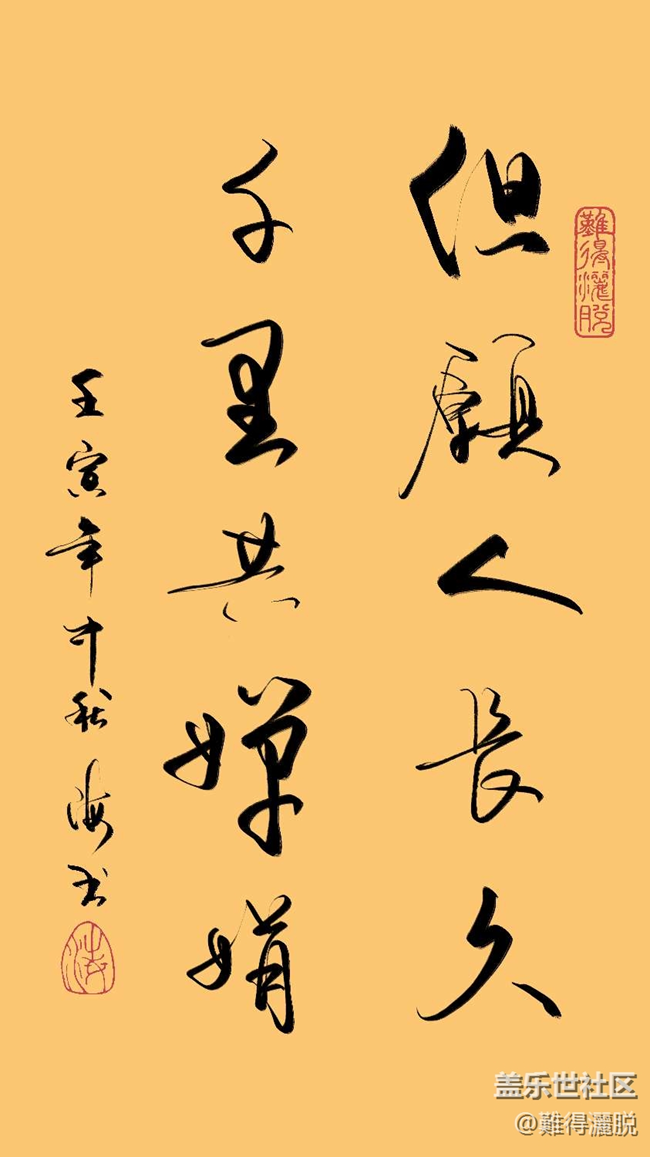 難得灑脱
但願人長久
千里共嬋娟
壬寅年中秋海书
海
盖乐世社区
@難得灑脱